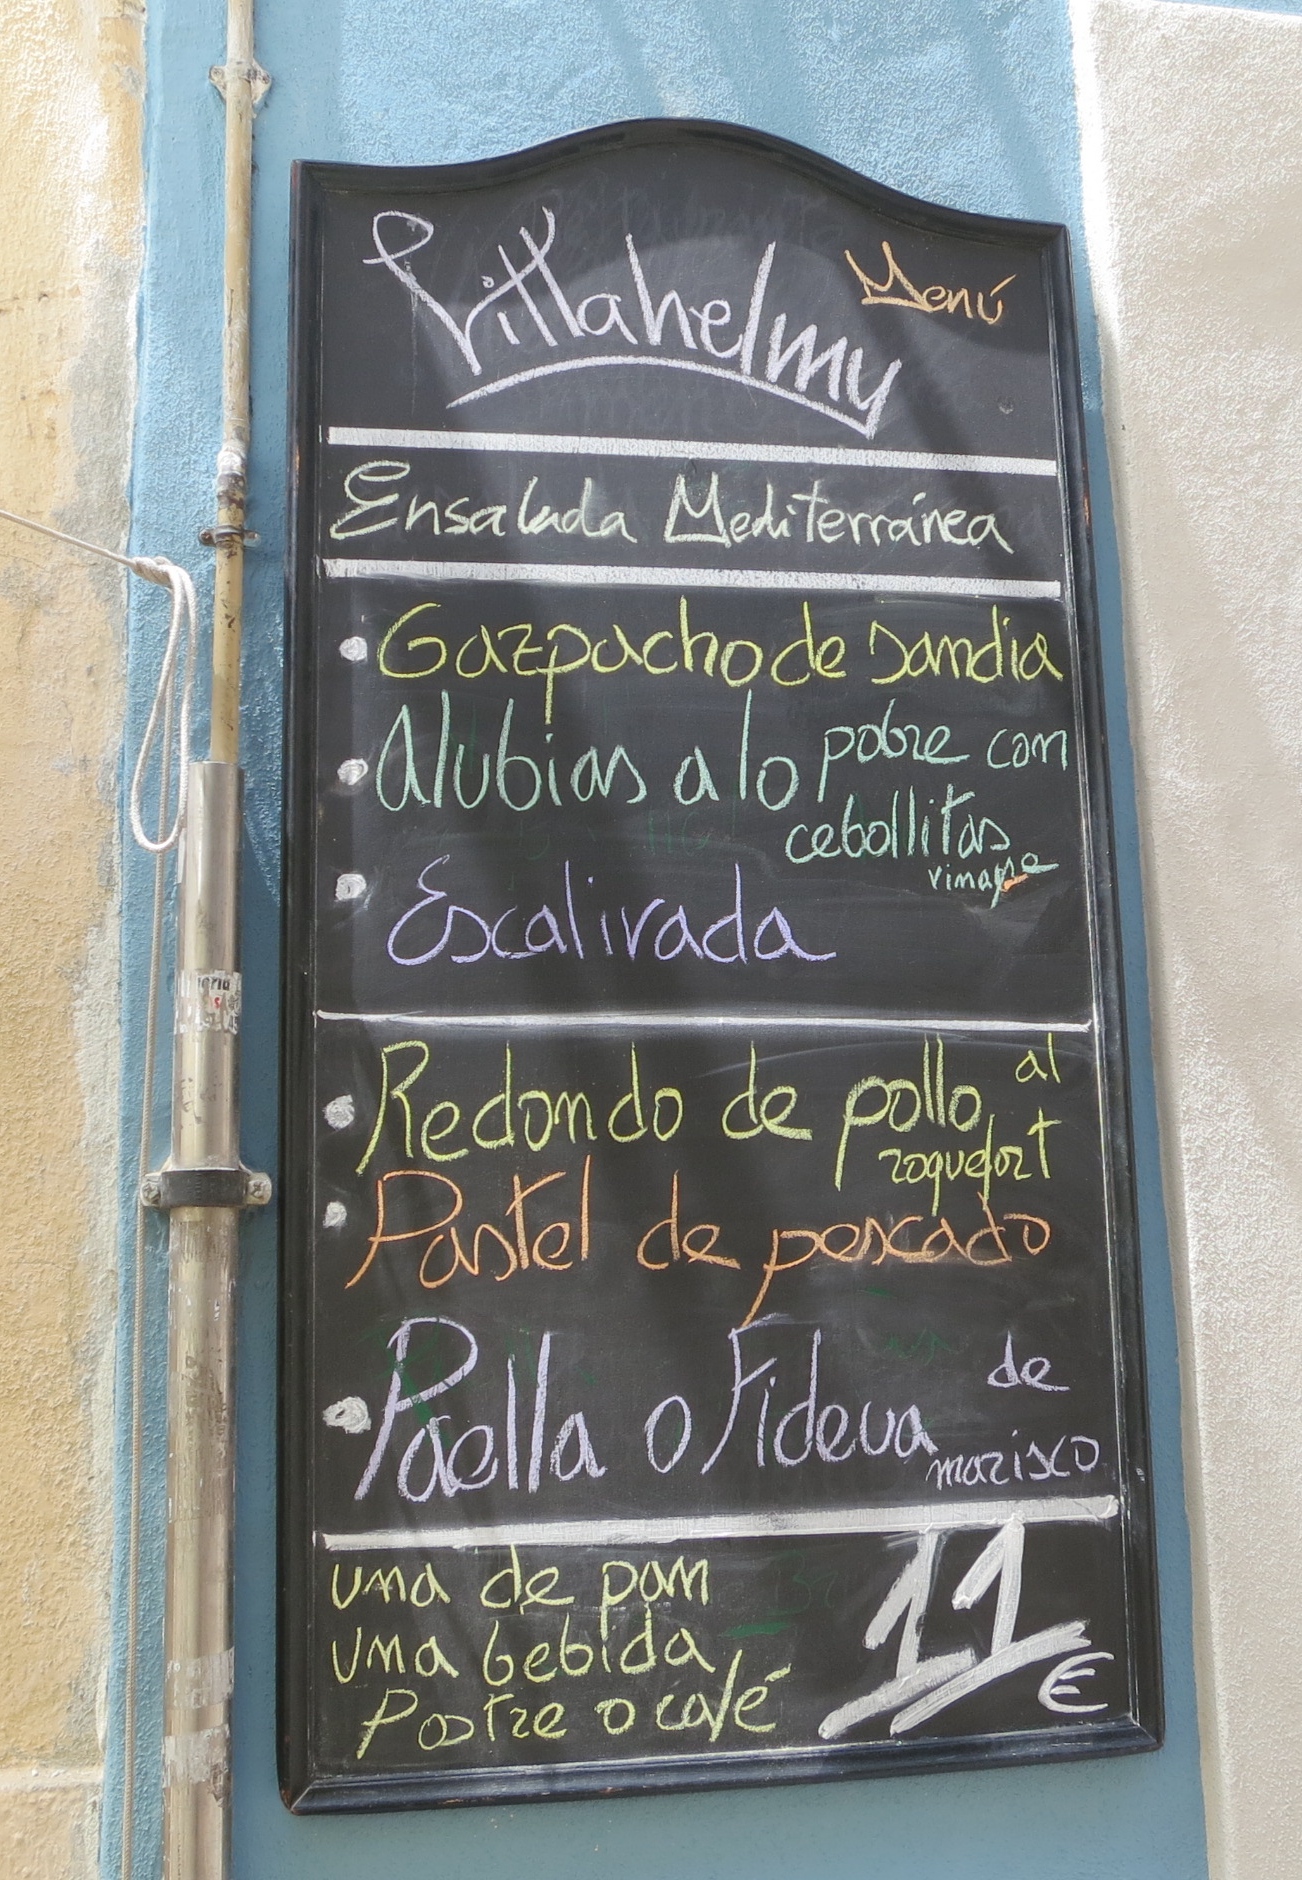 Villahelmy
Menú
Ensalada Mediterránea
Gazpacho de sandia
Alubias a lo pobre con
cebollitas
vinagre
Escalivada
Redondo de pollo al
roquefort
Pastel de pescado
Paella o Fideua de
marisco
una de pan
una bebida
Postre o café
11 €